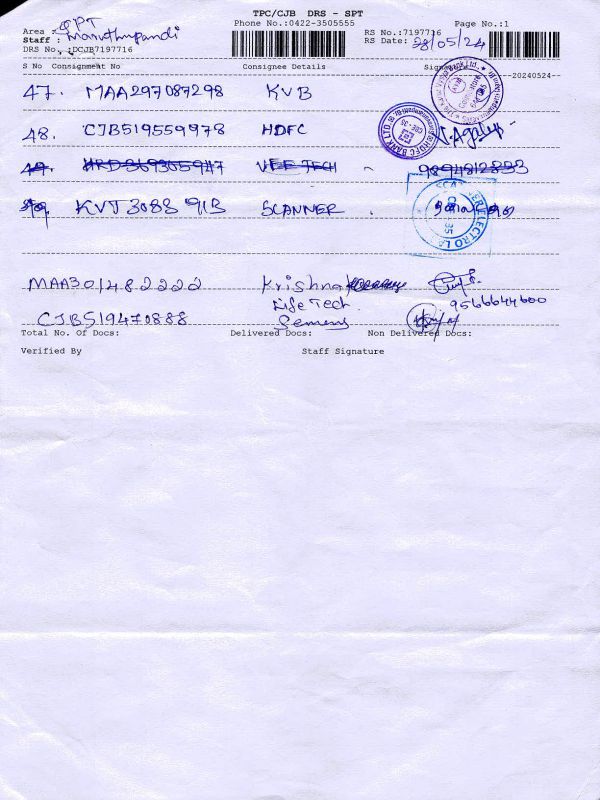 TPC/CJB DRS - SPT
Phone No.:0422-3505555 Page No.:1
Area : SPT RS No.:7197716
Staff : Maruthupandi RS Date: 28/05/24
DRS No. :DCJB7197716
S No Consignment No Consignee Details Signature
20240524
47. MAA297087298 KVB
48. CJB519559978 HDFC
49. HRD3693065947 VEE TECH 9894812833
KVT3088 91B SCANNER
MAA301482222 Krishna
Life Tech 9566644600
CJB519470888 Semens
Total No. of Docs: Delivered Docs: Non Delivered Docs:
Verified By Staff Signature